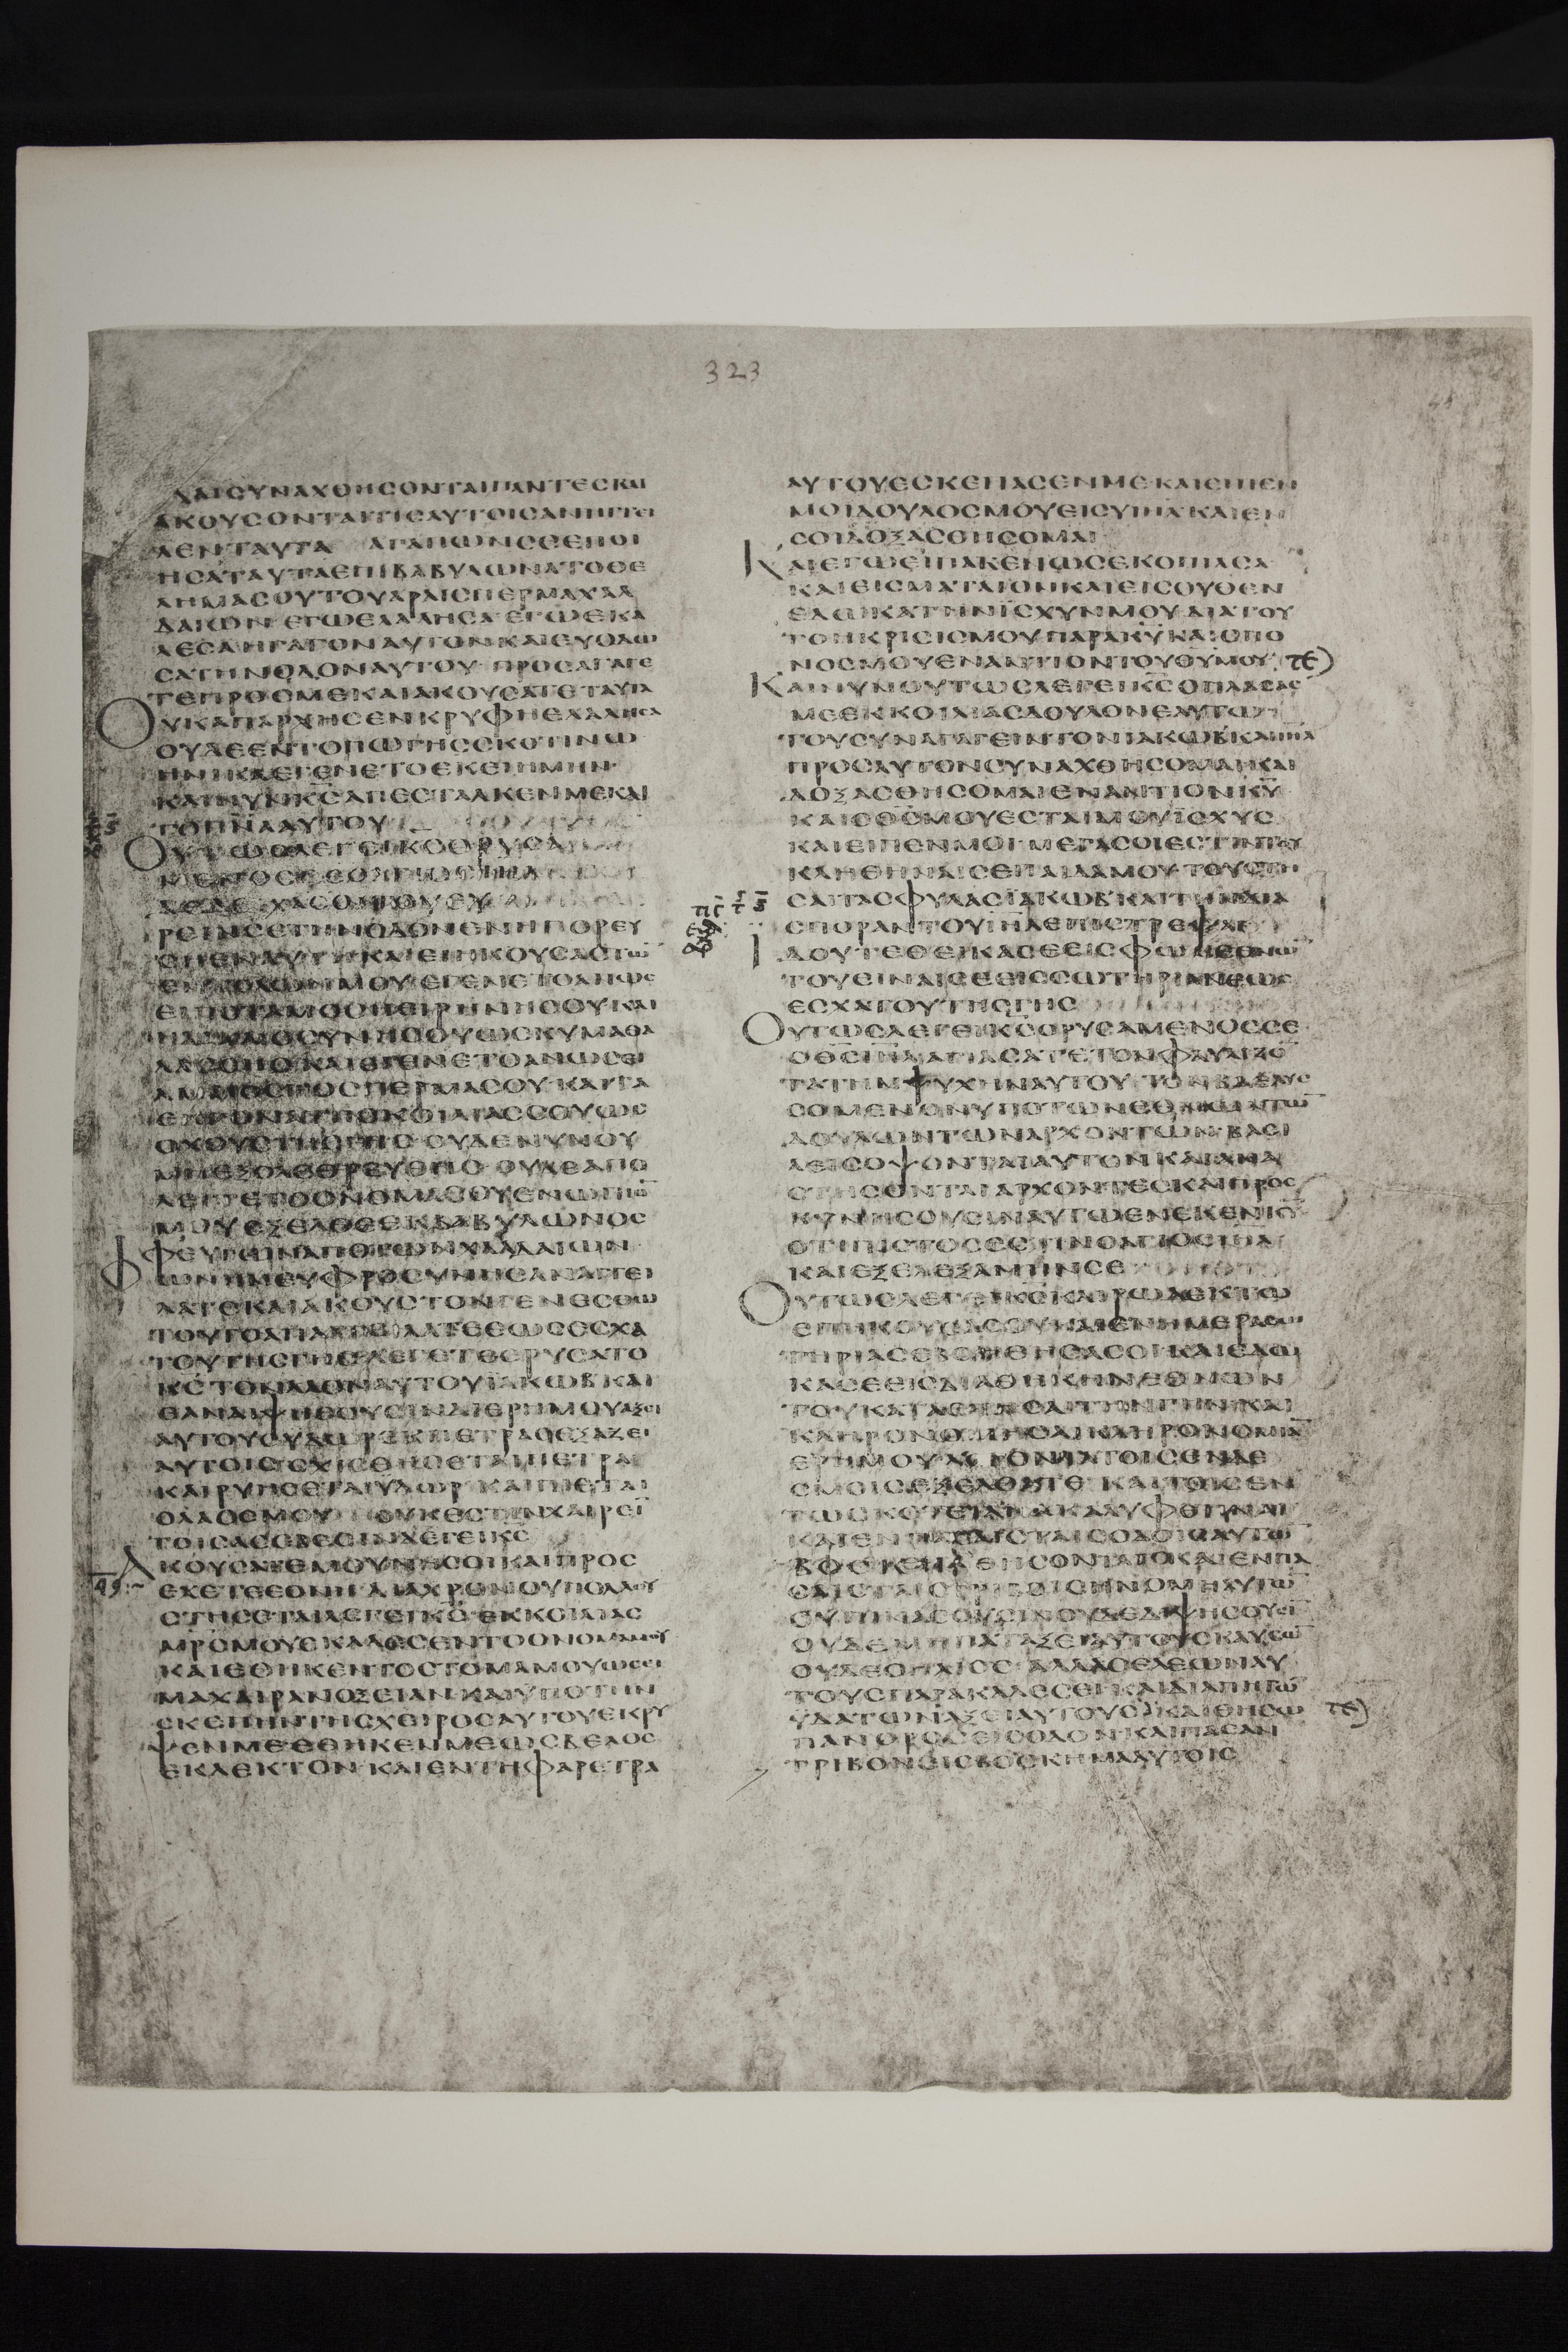 ΚΑΙϹΥΝΑΧΘΗϹΟΝΤΑΙΠΑΝΤΕϹΚΑΙ
ΑΚΟΥϹΟΝΤΑΙΤΙϹΑΥΤΟΙϹΑΝΗΓΓΕΙ
ΛΕΝΤΑΥΤΑ ΑΓΑΠΩΝϹΕΕΠΟΙ
ΗϹΑΤΑΥΤΑΕΠΙΒΑΒΥΛΩΝΑΤΟΘΕ
ΛΗΜΑϹΟΥΤΟΥΑΡΑΙϹΠΕΡΜΑΧΑΛ
ΔΑΙΩΝ ΕΓΩΕΛΑΛΗϹΑ ΕΓΩΕΚΑ
ΛΕϹΑΗΓΑΓΟΝΑΥΤΟΝΚΑΙΕΥΟΔΩ
ϹΑΤΗΝΟΔΟΝΑΥΤΟΥ ΠΡΟϹΑΓΑΓΕ
ΤΕΠΡΟϹΜΕΚΑΙΑΚΟΥϹΑΤΕΤΑΥΤΑ
ΟΥΚΑΠΑΡΧΗϹΕΝΚΡΥΦΗΕΛΑΛΗϹΑ
ΟΥΔΕΕΝΤΟΠΩΓΗϹϹΚΟΤΙΝΩ
ΗΝΙΚΑΕΓΕΝΕΤΟΕΚΕΙΗΜΗΝ
ΚΑΙΝΥΝΚ̅Ϲ̅ΑΠΕϹΤΑΛΚΕΝΜΕΚΑΙ
ΤΟΠ̅Ν̅Α̅ΑΥΤΟΥ
ΟΥΤΩϹΛΕΓΕΙΚ̅Ϲ̅ΟΡΥϹΑ
ΡΕΙΝϹΕΤΗΝΟΔΟΝΕΝΗΠΟΡΕΥ
ΕΙΡΗΝΗϹΟΥΚΑΙ
ΗΔΙΚΑΙΟϹΥΝΗϹΟΥΩϹΚΥΜΑΘΑ
ΛΑϹϹΗϹ ΚΑΙΕΓΕΝΕΤΟΑΝΩϹΕΙ
ΑΜΜΟϹΤΟϹΠΕΡΜΑϹΟΥ ΚΑΙΤΑ
ΟΧΟΥϹΤΗϹΓΗϹ ΟΥΔΕΝΥΝΟΥ
ΜΗΕΞΟΛΕΘΡΕΥΘΗϹ ΟΥΔΕΑΠΟ
ΛΕΙΤΕΤΟΟΝΟΜΑϹΟΥΕΝΩΠΙΟ̅
ΜΟΥ ΕΞΕΛΘΕΕΚΒΑΒΥΛΩΝΟϹ
ΦΕΥΓΩΝΑΠΟΤΩΝΧΑΛΔΑΙΩΝ
ΦΩΝΗΝΕΥΦΡΟϹΥΝΗϹΑΝΑΓΓΕΙ
ΛΑΤΕΚΑΙΑΚΟΥϹΤΟΝΓΕΝΕϹΘΩ
ΤΟΥΤΟΑΠΑΓΓΕΙΛΑΤΕΕΩϹΕϹΧΑ
ΤΟΥΤΗϹΓΗϹΛΕΓΕΤΕΕΡΥϹΑΤΟ
Κ̅Ϲ̅ΤΟΝΛΑΟΝΑΥΤΟΥΪΑΚΩΒ ΚΑΙ
ΕΑΝΔΙΨΗϹΟΥϹΙΝΔΙΕΡΗΜΟΥΑΞΕΙ
ΑΥΤΟΥϹΥΔΩΡΕΚΠΕΤΡΑϹΕΞΑΞΕΙ
ΑΥΤΟΙϹ ϹΧΙϹΘΗϹΕΤΑΙΠΕΤΡΑ
ΚΑΙΡΥΗϹΕΤΑΙΫΔΩΡ ΚΑΙΠΙΕΤΑΙ
ΟΛΑΟϹΜΟΥ ΟΥΚΕϹΤΙΝΧΑΙΡΕΙ̅
ΤΟΙϹΑϹΕΒΕϹΙΝΛΕΓΕΙΚ̅Ϲ̅
ΑΚΟΥϹΑΤΕΜΟΥΝΗϹΟΙΚΑΙΠΡΟϹ
ΕΧΕΤΕΕΘΝΗ ΔΙΑΧΡΟΝΟΥΠΟΛΛΟΥ
ϹΤΗϹΕΤΑΙΛΕΓΕΙΚ̅Ϲ̅ ΕΚΚΟΙΛΙΑϹ
ΜΡ̅Ϲ̅ΜΟΥΕΚΑΛΕϹΕΝΤΟΟΝΟΜΑΜΟΥ
ΚΑΙΕΘΗΚΕΝΤΟϹΤΟΜΑΜΟΥΩϹΕΙ
ΜΑΧΑΙΡΑΝΟΞΕΙΑΝ ΚΑΙΫΠΟΤΗΝ
ϹΚΕΠΗΝΤΗϹΧΕΙΡΟϹΑΥΤΟΥΕΚΡΥ
ΨΕΝΜΕΕΘΗΚΕΝΜΕΩϹΒΕΛΟϹ
ΕΚΛΕΚΤΟΝ ΚΑΙΕΝΤΗΦΑΡΕΤΡΑ
ΑΥΤΟΥΕϹΚΕΠΑϹΕΝΜΕ ΚΑΙΕΙΠΕΝ
ΜΟΙΔΟΥΛΟϹΜΟΥΕΙϹΥΙ̅Η̅Λ̅ ΚΑΙΕΝ
ϹΟΙΔΟΞΑϹΘΗϹΟΜΑΙ
ΚΑΙΕΓΩΕΙΠΑΚΕΝΩϹΕΚΟΠΙΑϹΑ
ΚΑΙΕΙϹΜΑΤΑΙΟΝΚΑΙΕΙϹΟΥΘΕΝ
ΕΔΩΚΑΤΗΝΪϹΧΥΝΜΟΥ ΔΙΑΤΟΥ
ΤΟΗΚΡΙϹΙϹΜΟΥΠΑΡΑΚ̅Υ̅ΚΑΙΟΠΟ
ΝΟϹΜΟΥΕΝΑΝΤΙΟΝΤΟΥΘ̅Υ̅ΜΟΥ
ΚΑΙΝΥΝΟΥΤΩϹΛΕΓΕΙΚ̅Ϲ̅ΟΠΛΑϹΑϹ
ΜΕΕΚΚΟΙΛΙΑϹΔΟΥΛΟΝΕΑΥΤΩ
ΤΟΥϹΥΝΑΓΑΓΕΙΝΤΟΝΪΑΚΩΒΚΑΙΙ̅Η̅Λ̅
ΠΡΟϹΑΥΤΟΝϹΥΝΑΧΘΗϹΟΜΑΙΚΑΙ
ΔΟΞΑϹΘΗϹΟΜΑΙΕΝΑΝΤΙΟΝΚ̅Υ̅
ΚΑΙΟΘ̅Ϲ̅ΜΟΥΕϹΤΑΙΜΟΥΪϹΧΥϹ
ΚΑΙΕΙΠΕΝΜΟΙ ΜΕΓΑϹΟΙΕϹΤΙΝΤΟΥ
ΚΛΗΘΗΝΑΙϹΕΠΑΙΔΑΜΟΥ ΤΟΥϹΤΗ
ϹΑΙΤΑϹΦΥΛΑϹΪΑΚΩΒ ΚΑΙΤΗΝΔΙΑ
ϹΠΟΡΑΝΤΟΥΙ̅Η̅Λ̅ΕΠΙϹΤΡΕΨΑΙ
ΙΔΟΥΤΕΘΕΙΚΑϹΕΕΙϹΦΩϹΕΘΝΩ̅
ΤΟΥΕΙΝΑΙϹΕΕΙϹϹΩΤΗΡΙΑΝΕΩϹ
ΕϹΧΑΤΟΥΤΗϹΓΗϹ
ΟΥΤΩϹΛΕΓΕΙΚ̅Ϲ̅ΟΡΥϹΑΜΕΝΟϹϹΕ
ΟΘ̅Ϲ̅Ι̅Η̅Λ̅ΑΓΙΑϹΑΤΕΤΟΝΦΑΥΛΙΖΟ̅
ΤΑΤΗΝΨΥΧΗΝΑΥΤΟΥ ΤΟΝΒΔΕΛΥϹ
ϹΟΜΕΝΟΝΥΠΟΤΩΝΕΘΝΩΝΤΩ̅
ΔΟΥΛΩΝΤΩΝΑΡΧΟΝΤΩΝ ΒΑϹΙ
ΛΕΙϹΟΨΟΝΤΑΙΑΥΤΟΝΚΑΙΑΝΑ
ϹΤΗϹΟΝΤΑΙΑΡΧΟΝΤΕϹΚΑΙΠΡΟϹ
ΚΥΝΗϹΟΥϹΙΝΑΥΤΩΕΝΕΚΕΝΚ̅Υ̅
ΟΤΙΠΙϹΤΟϹΕϹΤΙΝΟΑΓΙΟϹΙ̅Η̅Λ̅
ΚΑΙΕΞΕΛΕΞΑΜΗΝϹΕ
ΟΥΤΩϹΛΕΓΕΙΚ̅Ϲ̅ΚΑΙΡΩΔΕΚΤΩ
ΕΠΗΚΟΥϹΑϹΟΥΚΑΙΕΝΗΜΕΡΑϹΩ
ΤΗΡΙΑϹΕΒΟΗΘΗϹΑϹΟΙ ΚΑΙΕΔΩ
ΚΑϹΕΕΙϹΔΙΑΘΗΚΗΝΕΘΝΩΝ
ΤΟΥΚΑΤΑϹΤΗϹΑΙΤΗΝΓΗΝΚΑΙ
ΚΛΗΡΟΝΟΜΗϹΑΙΚΛΗΡΟΝΟΜΙΑ̅
ΕΡΗΜΟΥ ΛΕΓΟΝΤΑΤΟΙϹΕΝΔΕ
ϹΜΟΙϹΕΞΕΛΘΑΤΕ ΚΑΙΤΟΙϹΕΝ
ΤΩϹΚΟΤΕΙΑΝΑΚΑΛΥΦΘΗΝΑΙ
ΚΑΙΕΝΠΑϹΑΙϹΤΑΙϹΟΔΟΙϹΑΥΤΩ̅
ΒΟϹΚΗΘΗϹΟΝΤΑΙΚΑΙΕΝΠΑ
ϹΑΙϹΤΑΙϹΤΡΙΒΟΙϹΗΝΟΜΗΑΥΤΩ̅
ΟΥΠΙΝΑϹΟΥϹΙΝΟΥΔΕΔΙΨΗϹΟΥϹΙ̅
ΟΥΔΕΜΗΠΑΤΑΞΕΙΑΥΤΟΥϹΚΑΥϹΩ̅
ΟΥΔΕΟΗΛΙΟϹ ΑΛΛΑΟΕΛΕΩΝΑΥ
ΤΟΥϹΠΑΡΑΚΑΛΕϹΕΙ ΚΑΙΔΙΑΠΗΓΩ̅
ΫΔΑΤΩΝΑΞΕΙΑΥΤΟΥϹ ΚΑΙΘΗϹΩ
ΠΑΝΟΡΟϹΕΙϹΟΔΟΝΚΑΙΠΑϹΑΝ
ΤΡΙΒΟΝΕΙϹΒΟϹΚΗΜΑΑΥΤΟΙϹ
323